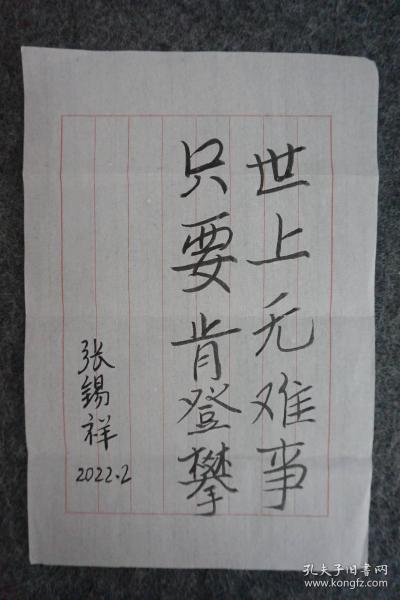 世上无难事
只要肯登攀
张锡祥
2022.2
孔夫子旧书网
www.kongfz.com